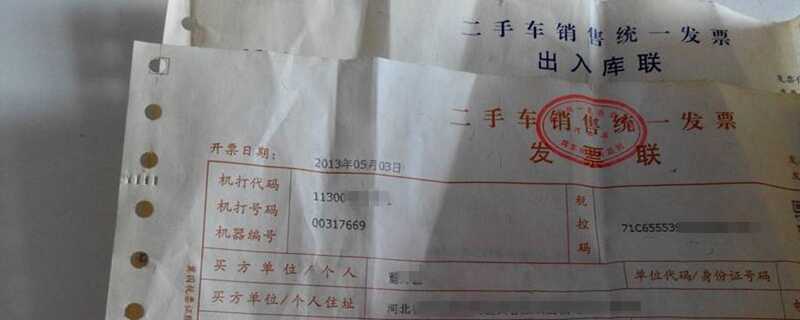 二手车销售统一发票
出入库联
二手车销售统一发票
发票联
开票日期: 2013年05月03日
机打代码 11300
机打号码 00317669
机器编号
税控码 71C655539
买方单位/个人
单位代码/身份证号码
买方单位/个人住址 河北